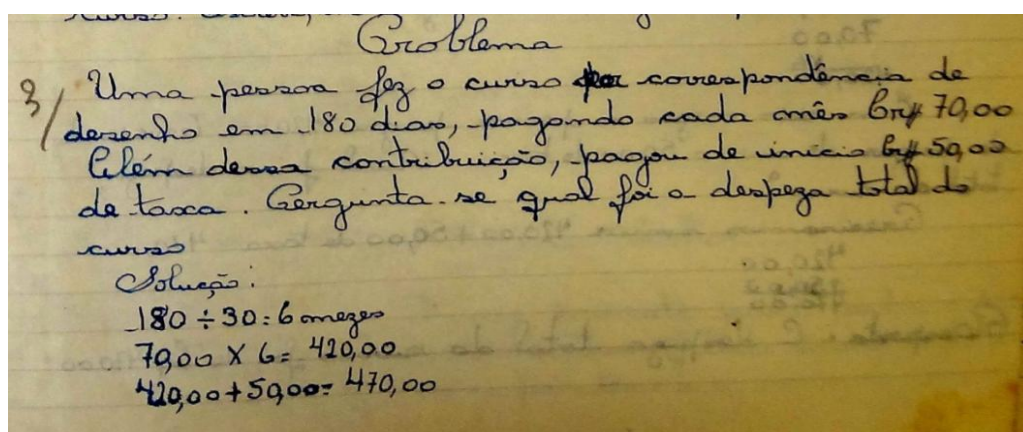 Problema
3/ Uma pessoa fez o curso por correspondência de
desenho em 180 dias, pagando cada mês Cr$ 70,00
Além dessa contribuição, pagou de início Cr$ 50,00
de taxa. Pergunta-se qual foi a despeza total do
curso
Solução:
180 ÷ 30 = 6 mezes
70,00 X 6 = 420,00
420,00 + 50,00 = 470,00